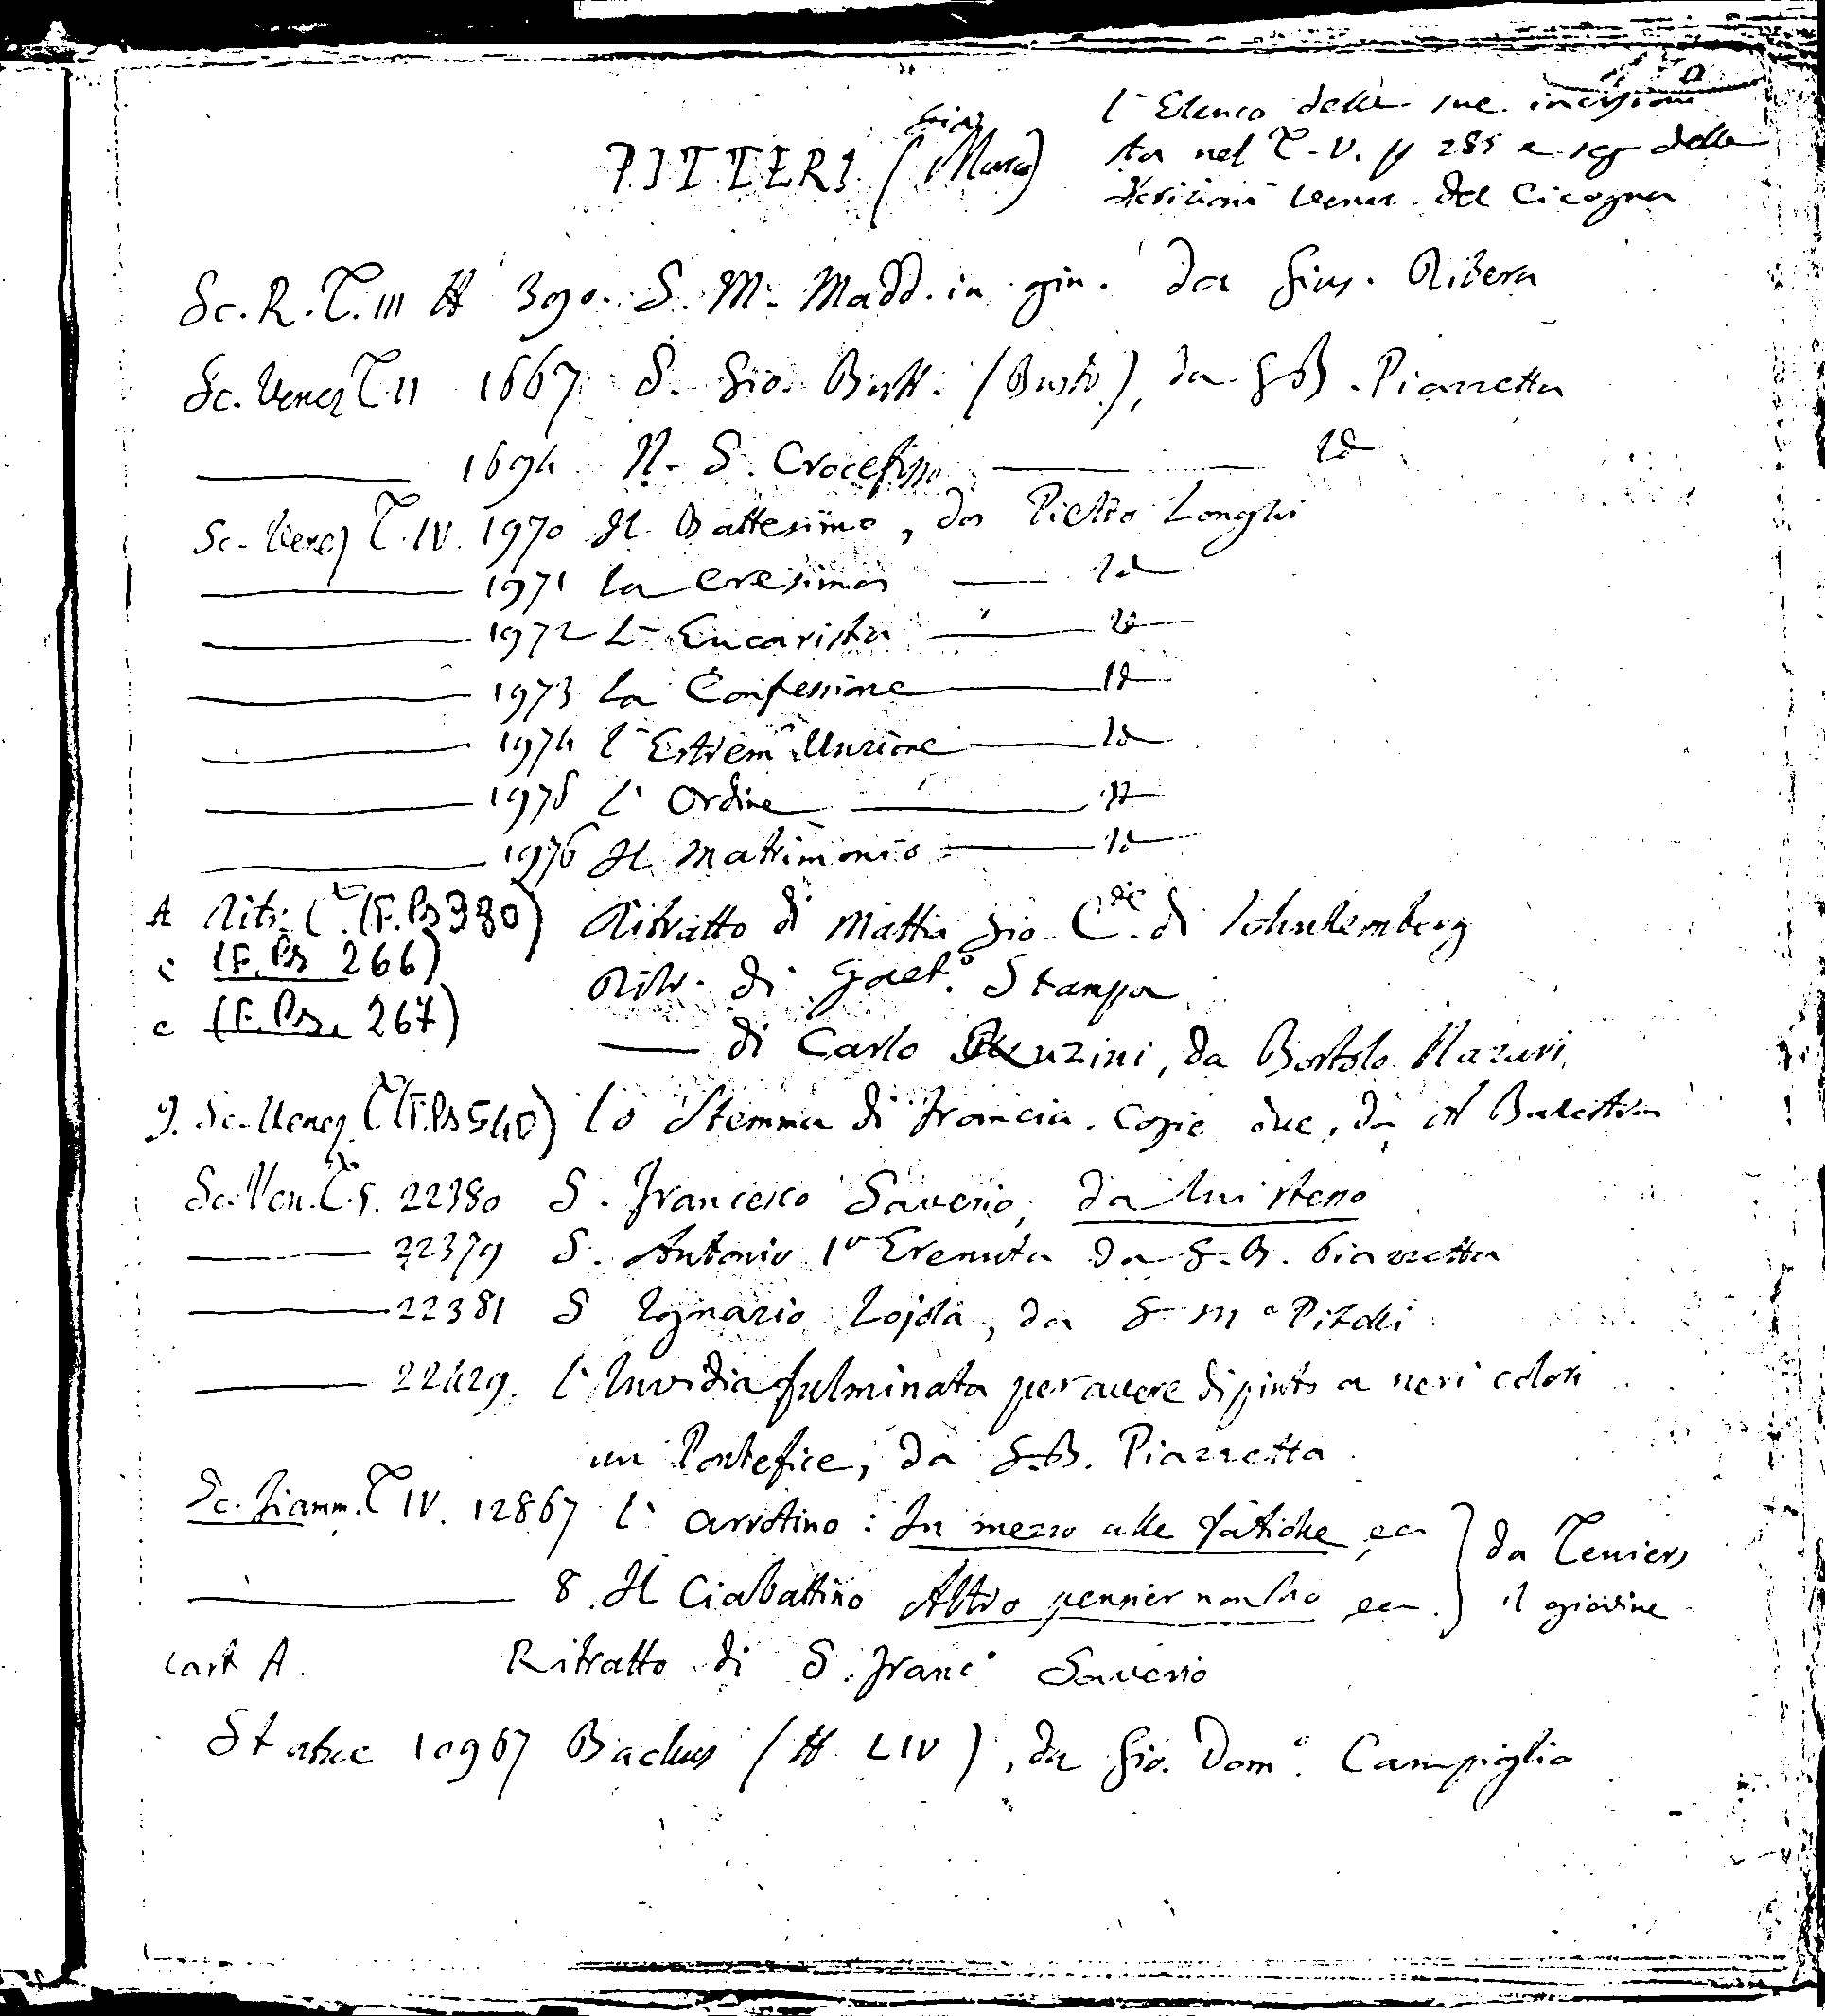 L' Elenco delle sue incisioni
PITTERI (Gio. Marco)
sta nel T. V. p 285 e seg delle
Iscrizioni Venez. del Cicogna
Sc. R. T. III # 390. S. M. Madd. in gin. da Gius. Ribera
Sc. Venez T. II 1667 S. Gio. Batt. (Busto), da G B. Piazzetta
1694 N. S. Crocefisso Id
Sc. Venez T. IV. 1970 Il Battesimo, da Pietro Longhi
1971 La Cresima Id
1972 L' Eucaristia Id
1973 La Confessione Id
1974 L' Estrem' Unzione Id
1975 L' Ordine Id
1976 Il Matrimonio Id
A Ritr. T. (F. Ps 380) Ritratto di Mattia Gio. C.te di Schulemberg
c (F. Ps 266) Ritr. di Gaet.o Stampa
c (F. Ps. 267) di Carlo Ruzini, da Bortolo Nazari.
g. Sc. Venez. T. (F. Ps 540) Lo Stemma di Francia. Copie due, da A Balestra
Sc. Ven. T. 5. 22380 S. Francesco Saverio, da lui stesso
22379 S. Antonio l' Eremita da G. B. Piazzetta
22381 S Ignazio Lojola, da G M.a Pittari
22429. L' Invidia fulminata per avere dipinto a neri colori
un Pontefice, da G. B. Piazzetta
Sc. Fiamm. T IV. 12867 L' arrotino: In mezzo alle fatiche, ec } da Teniers
8. Il Ciabattino Altro pensier non ho ec. } il giovine
Cart A. Ritratto di S. Franc.o Saverio
Statue 10967 Bachus (# LIV), da Gio. Dom.o Campiglio